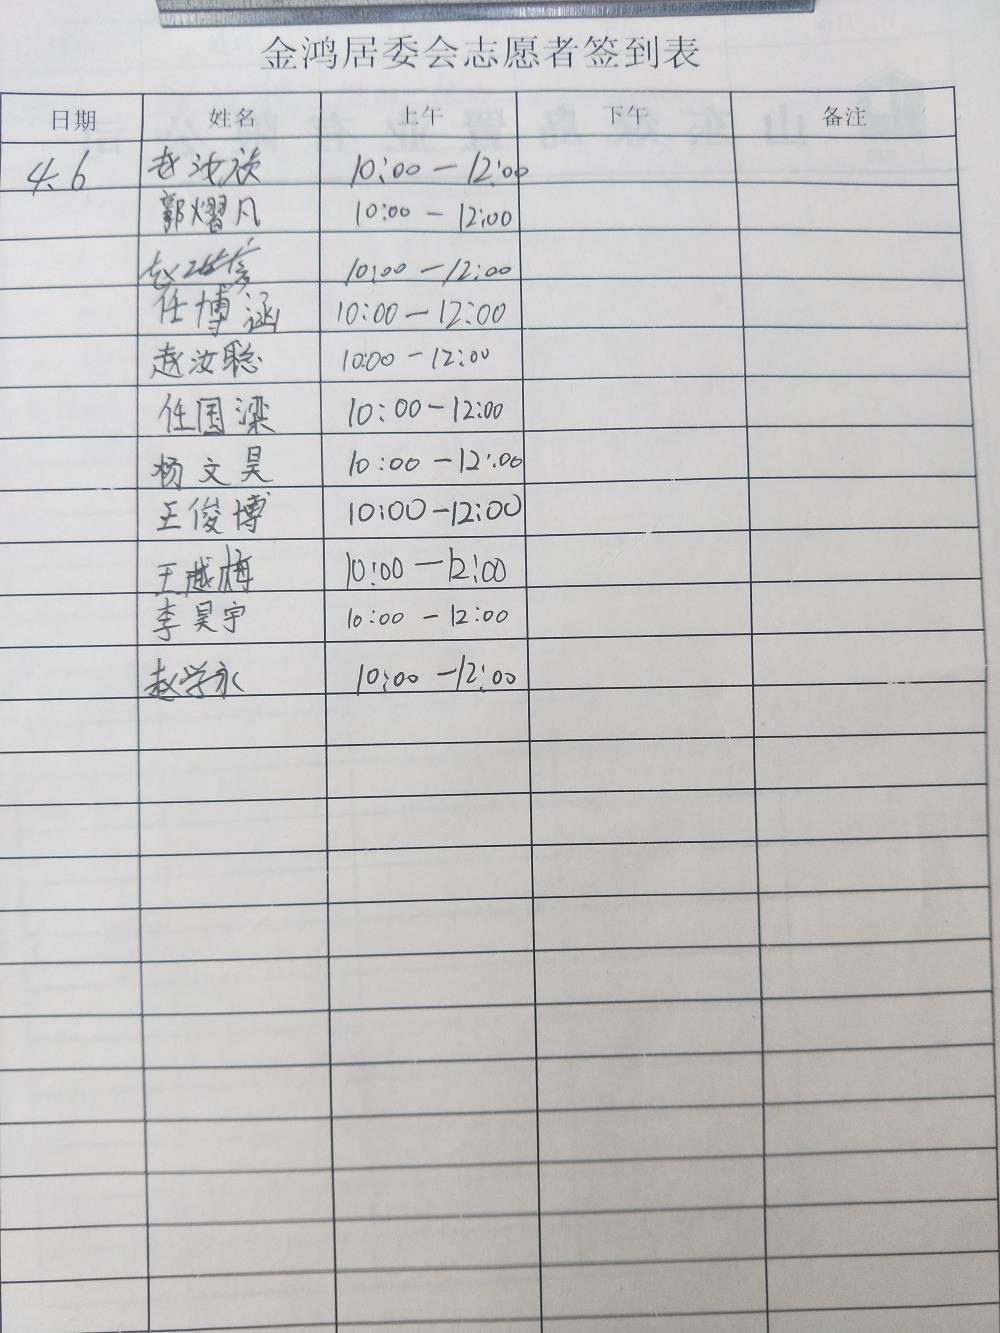 金鸿居委会志愿者签到表
日期 姓名 上午 下午 备注
4.6 赵汝 10:00-12:00
郭熠凡 10:00-12:00
赵 10:00-12:00
任博涵 10:00-12:00
赵汝聪 10:00-12:00
任国梁 10:00-12:00
杨文昊 10:00-12:00
王俊博 10:00-12:00
王越梅 10:00-12:00
李昊宇 10:00-12:00
赵学永 10:00-12:00